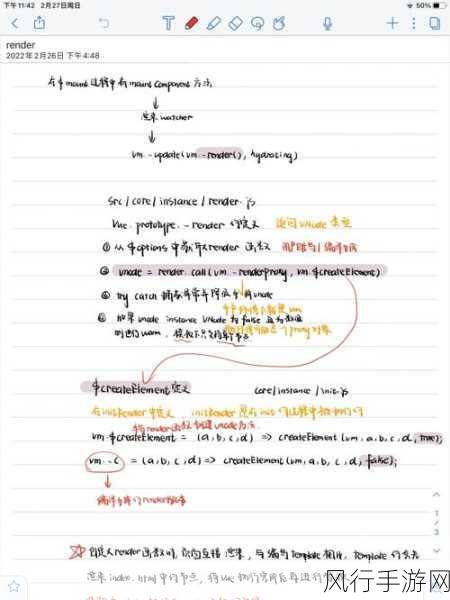 下午11:42 2月27日周日
50%
render
2022年2月26日 下午4:48
在$mount过程中有mountComponent方法
渲染watcher
vm._update(vm._render(), hydrating)
src/core/instance/render.js
Vue.prototype._render的定义 返回VNode类型
① 从$options中拿到render函数 用户手写/编译生成
② vnode = render.call(vm._renderProxy, vm.$createElement)
③ try catch
④ 如果vnode instance VNode 为false 且为数组
$createElement定义 core/instance/init.js
在initRender中定义, initRender是在init的过程中
手写render函数创建vnode方法
vm.$createElement = (a,b,c,d) => createElement(vm,a,b,c,d,true);
vm._c = (a,b,c,d) => createElement(vm,a,b,c,d,false);
编译生成的render函数
自定义render函数时,
渲染index.html中的节点,
1
/
3
风行手游网